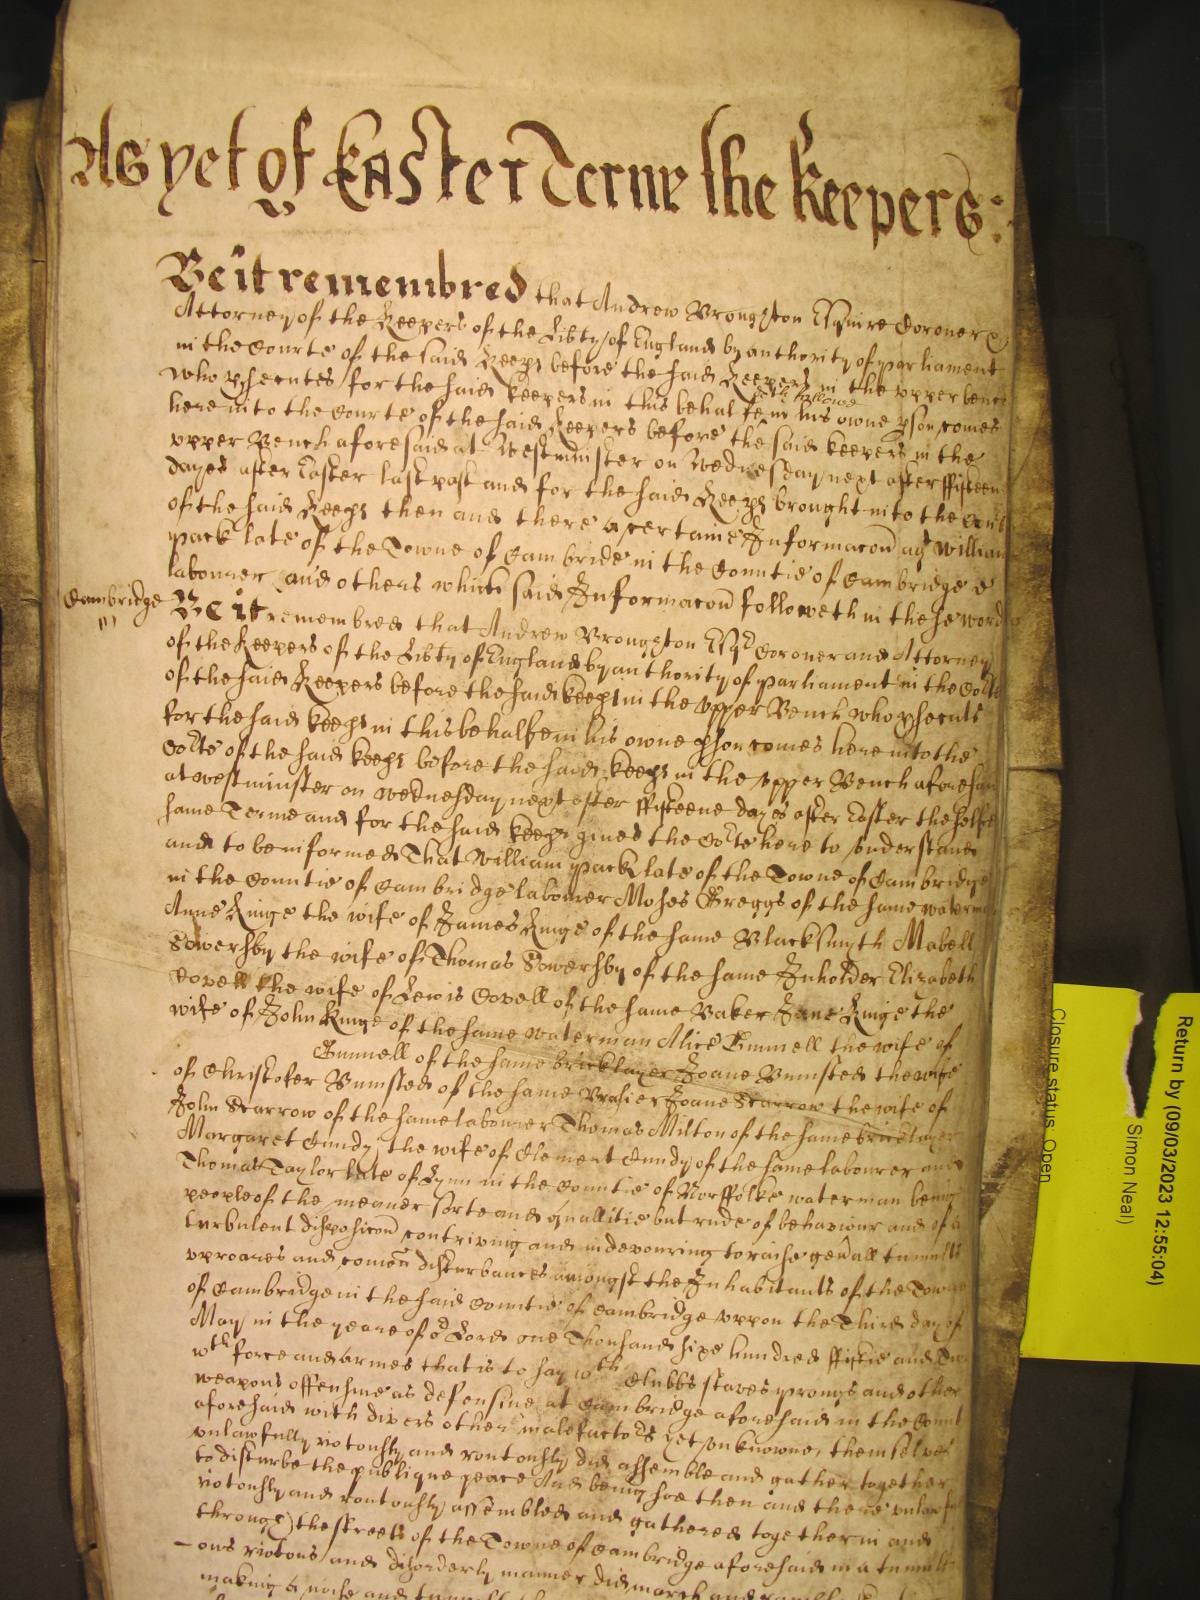 As yet of Easter Terme the Keepers:
Be it remembred that Andrew Broughton Esquire Coroner &
Attorney of the Keepers of the Libty of England by authority of parliament
in the Courte of the said Keeps before the said Keepers in the upper bench
who psecutes for the said keepers in this behalfe in his owne pson comes
here into the Courte of the said Keepers before the said keepers in the
upper Bench aforesaid at Westminster on Wednesday next after ffifteen
dayes after Easter last past and for the said Keeps brought into the Court
of the said Keeps then and there a certaine Informacon agt William
pack late of the Towne of Cambridge in the Countie of Cambridge
labourer and others which said Informacon followeth in these words
Cambridge
Be it remembred that Andrew Broughton Esqr Coroner and Attorney
of the Keepers of the Libty of England by authority of parliament in the Cote
of the said Keepers before the said keeps in the upper Bench who psecuts
for the said keeps in this behalfe in his owne pson comes here into the
Cote of the said keeps before the said keeps in the upper Bench aforesaid
at westminster on wednesday next after ffifteene dayes after Easter the selfe
same Terme and for the said keeps gives the Cote here to understand
and to be informed That William pack late of the Towne of Cambridge
in the Countie of Cambridge labourer Moses Greggs of the same waterman
Anne Kinge the wife of James Kinge of the same Blacksmyth Mabell
Sowersby the wife of Thomas Sowersby of the same Inholder Elizabeth
Covell the wife of Lewis Covell of the same Baker Jane Kinge the
wife of John Kinge of the same waterman Alice Gunnell the wife of
Gunnell of the same bricklayer Joane Bumsted the wife
of Christofer Bumsted of the same Brasier Joane Scarrow the wife of
John Scarrow of the same labourer Thomas Milton of the same bricklayer
Margaret Cundy the wife of Clement Cundy of the same labourer and
Thomas Taylor late of Lynn in the Countie of Norffolke waterman being
people of the meaner sorte and quallitie but rude of behaviour and of a
turbulent disposicon contriving and indevouring to raise genall tumults
uproares and comon disturbances amongst the Inhabitants of the Towne
of Cambridge in the said Countie of Cambridge uppon the Third day of
May in the yeare of or Lord one Thousand sixe hundred ffiftie and Two
wth force and armes that is to say wth Clubbs staves prongs and other
weapons offensive as defensive at Cambridge aforesaid in the Count
aforesaid with divers other malefactors yet unknowne, themselves
unlawfully riotously and routously did assemble and gather together
to disturbe the publique peace And being soe then and there unlawfu
riotously and routously assembled and gathered together in and
through the streets of the Towne of Cambridge aforesaid in a tumultu
- ous riotous and disorderly manner did march and
making a noise and
Return by (09/03/2023 12:55:04)
Simon Neal)
Closure status: Open